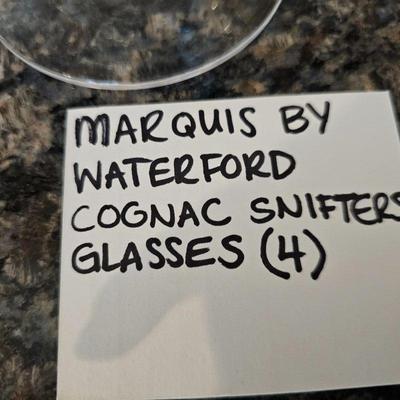 MARQUIS BY
WATERFORD
COGNAC SNIFTERS
GLASSES (4)